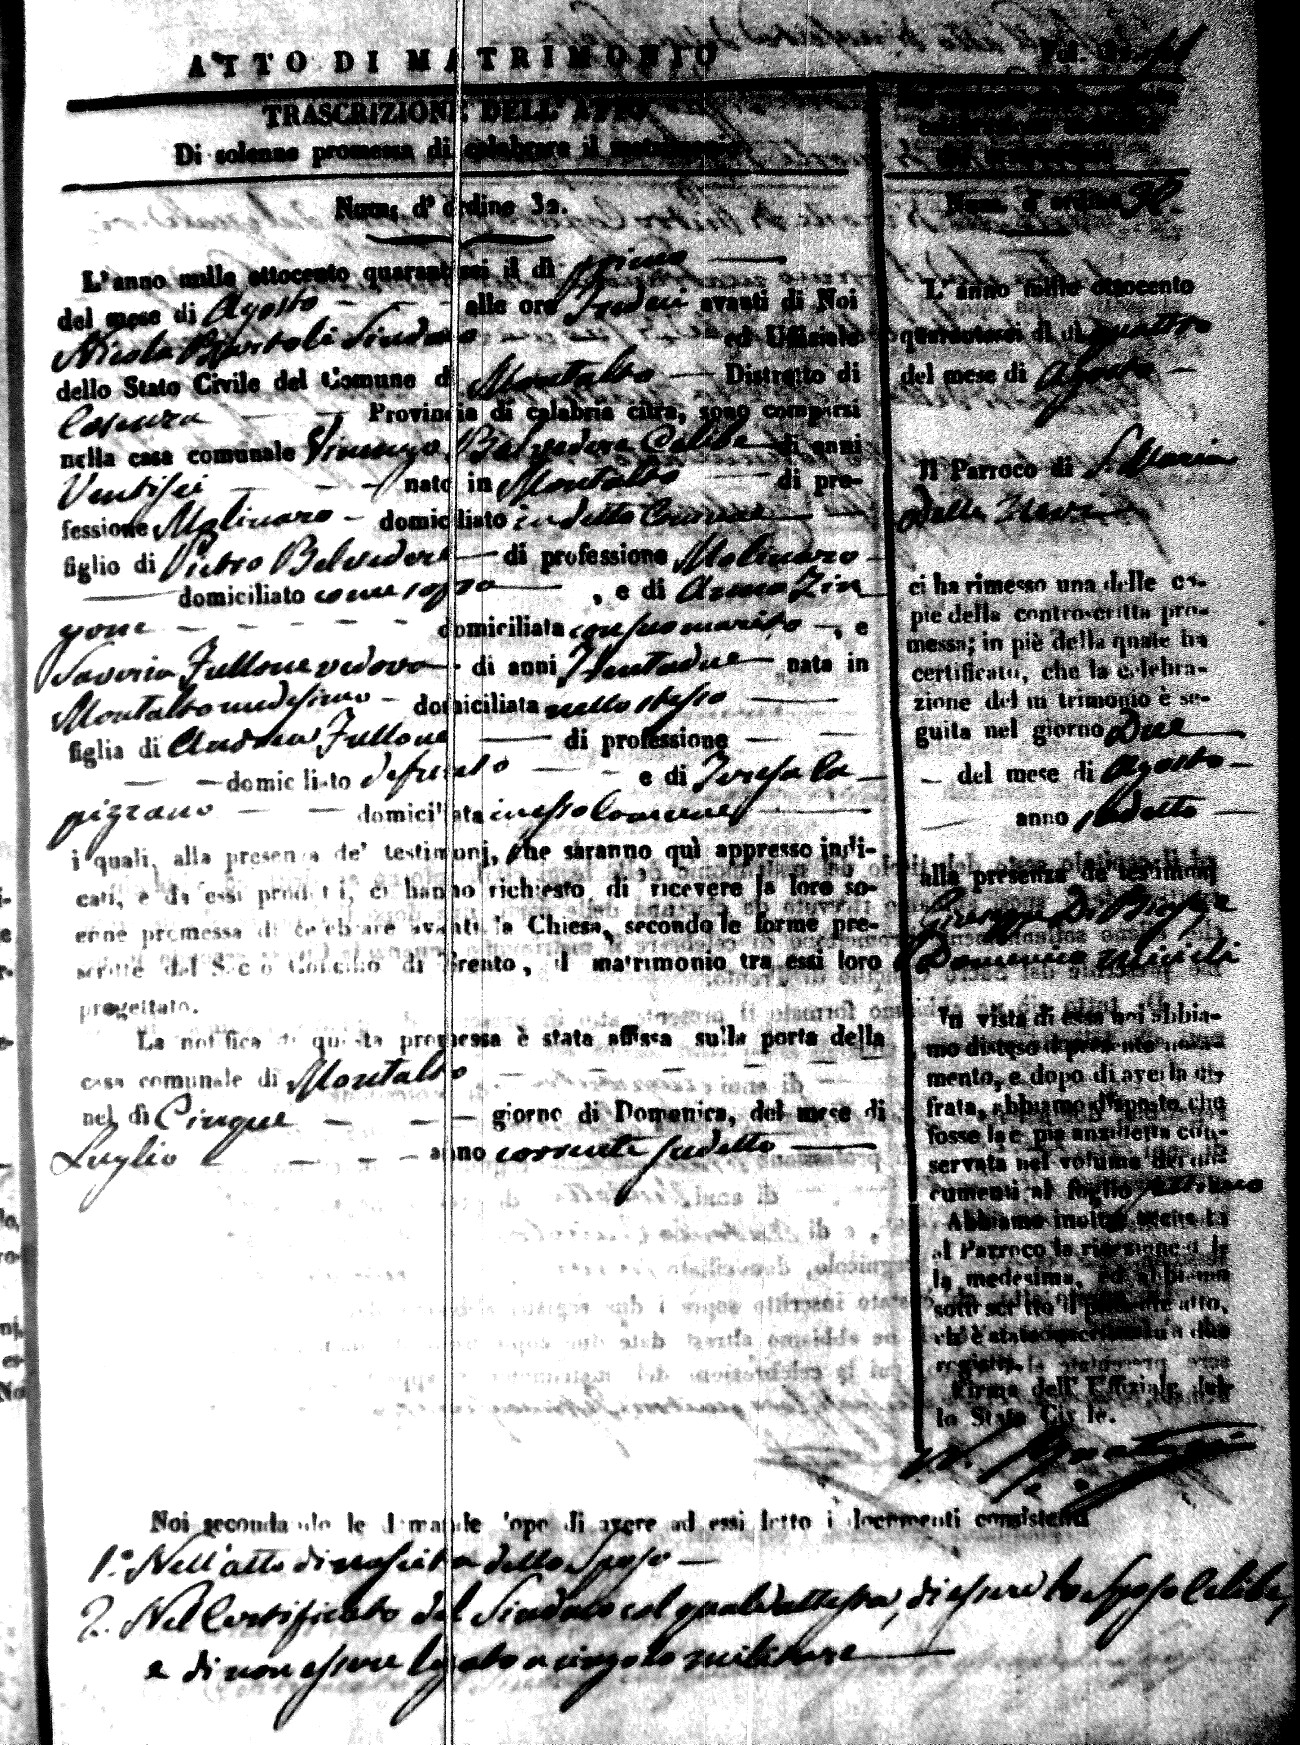 ATTO DI MATRIMONIO
TRASCRIZIONE DELL' ATTO
Di solenne promessa di celebrare il matrimonio
Num. d' ordine 32.
L'anno mille ottocento quarantasei il dì primo
del mese di Agosto alle ore avanti di Noi
Nicola Bartoli Sindaco ed Uffiziale
dello Stato Civile del Comune di Montalto Distretto di
Cosenza Provincia di calabria citra, sono comparsi
nella casa comunale Vincenzo Belvedere Celibe di anni
Ventisei nato in Montalto di pro-
fessione Molinaro domiciliato in detto Comune
figlio di Pietro Belvedere di professione Molinaro
domiciliato come sopra , e di Anna Zin
gone domiciliata con suo marito , e
Saveria Fullone vedova di anni Trentadue nata in
Montalto medesimo domiciliata nello stesso
figlia di Andrea Fullone di professione
domiciliato defunto e di Teresa la
pizzano domiciliata in esso Comune
i quali, alla presenza de' testimonj, che saranno quì appresso indi-
cati, e da essi prodotti, ci hanno richiesto di ricevere la loro so-
enne promessa di celebrare avanti la Chiesa, secondo le forme pre-
scritte dal Sacro Concilio di Trento, il matrimonio tra essi loro
progettato.
La notifica di questa promessa è stata affissa sulla porta della
casa comunale di Montalto
nel dì Cinque giorno di Domenica, del mese di
Luglio anno corrente sudetto
Num. d' ordine 32.
L'anno mille ottocento
quarantasei il dì quattro
del mese di Agosto
Il Parroco di S. Maria
della Neve
ci ha rimesso una delle co-
pie della controscritta pro-
messa; in piè della quale ha
certificato, che la celebra-
zione del matrimonio è se-
guita nel giorno Due
del mese di Agosto
anno sudetto
alla presenza de' testimonj
Giuseppe Di Biase
Domenico Micieli
In vista di essa noi abbia-
mo disteso il presente nota-
mento, e dopo di averla ci-
frata, abbiamo disposto che
fosse la copia anzidetta con-
servata nel volume dei do-
cumenti al foglio
Abbiamo inoltre accusata
al Parroco la ricezione del-
la medesima, ed abbiamo
sottoscritto il presente atto,
ch' è stato inscritto su i due
registri.
Firma dell' Uffiziale del-
lo Stato Civile.
Noi secondando le domande dopo di avere ad essi letto i documenti consistenti
1.° Nell'atto di nascita dello Sposo
2. Nel Certificato del Sindaco col quale attesta, di essere lo Sposo Celibe,
e di non essere legato a vincolo militare